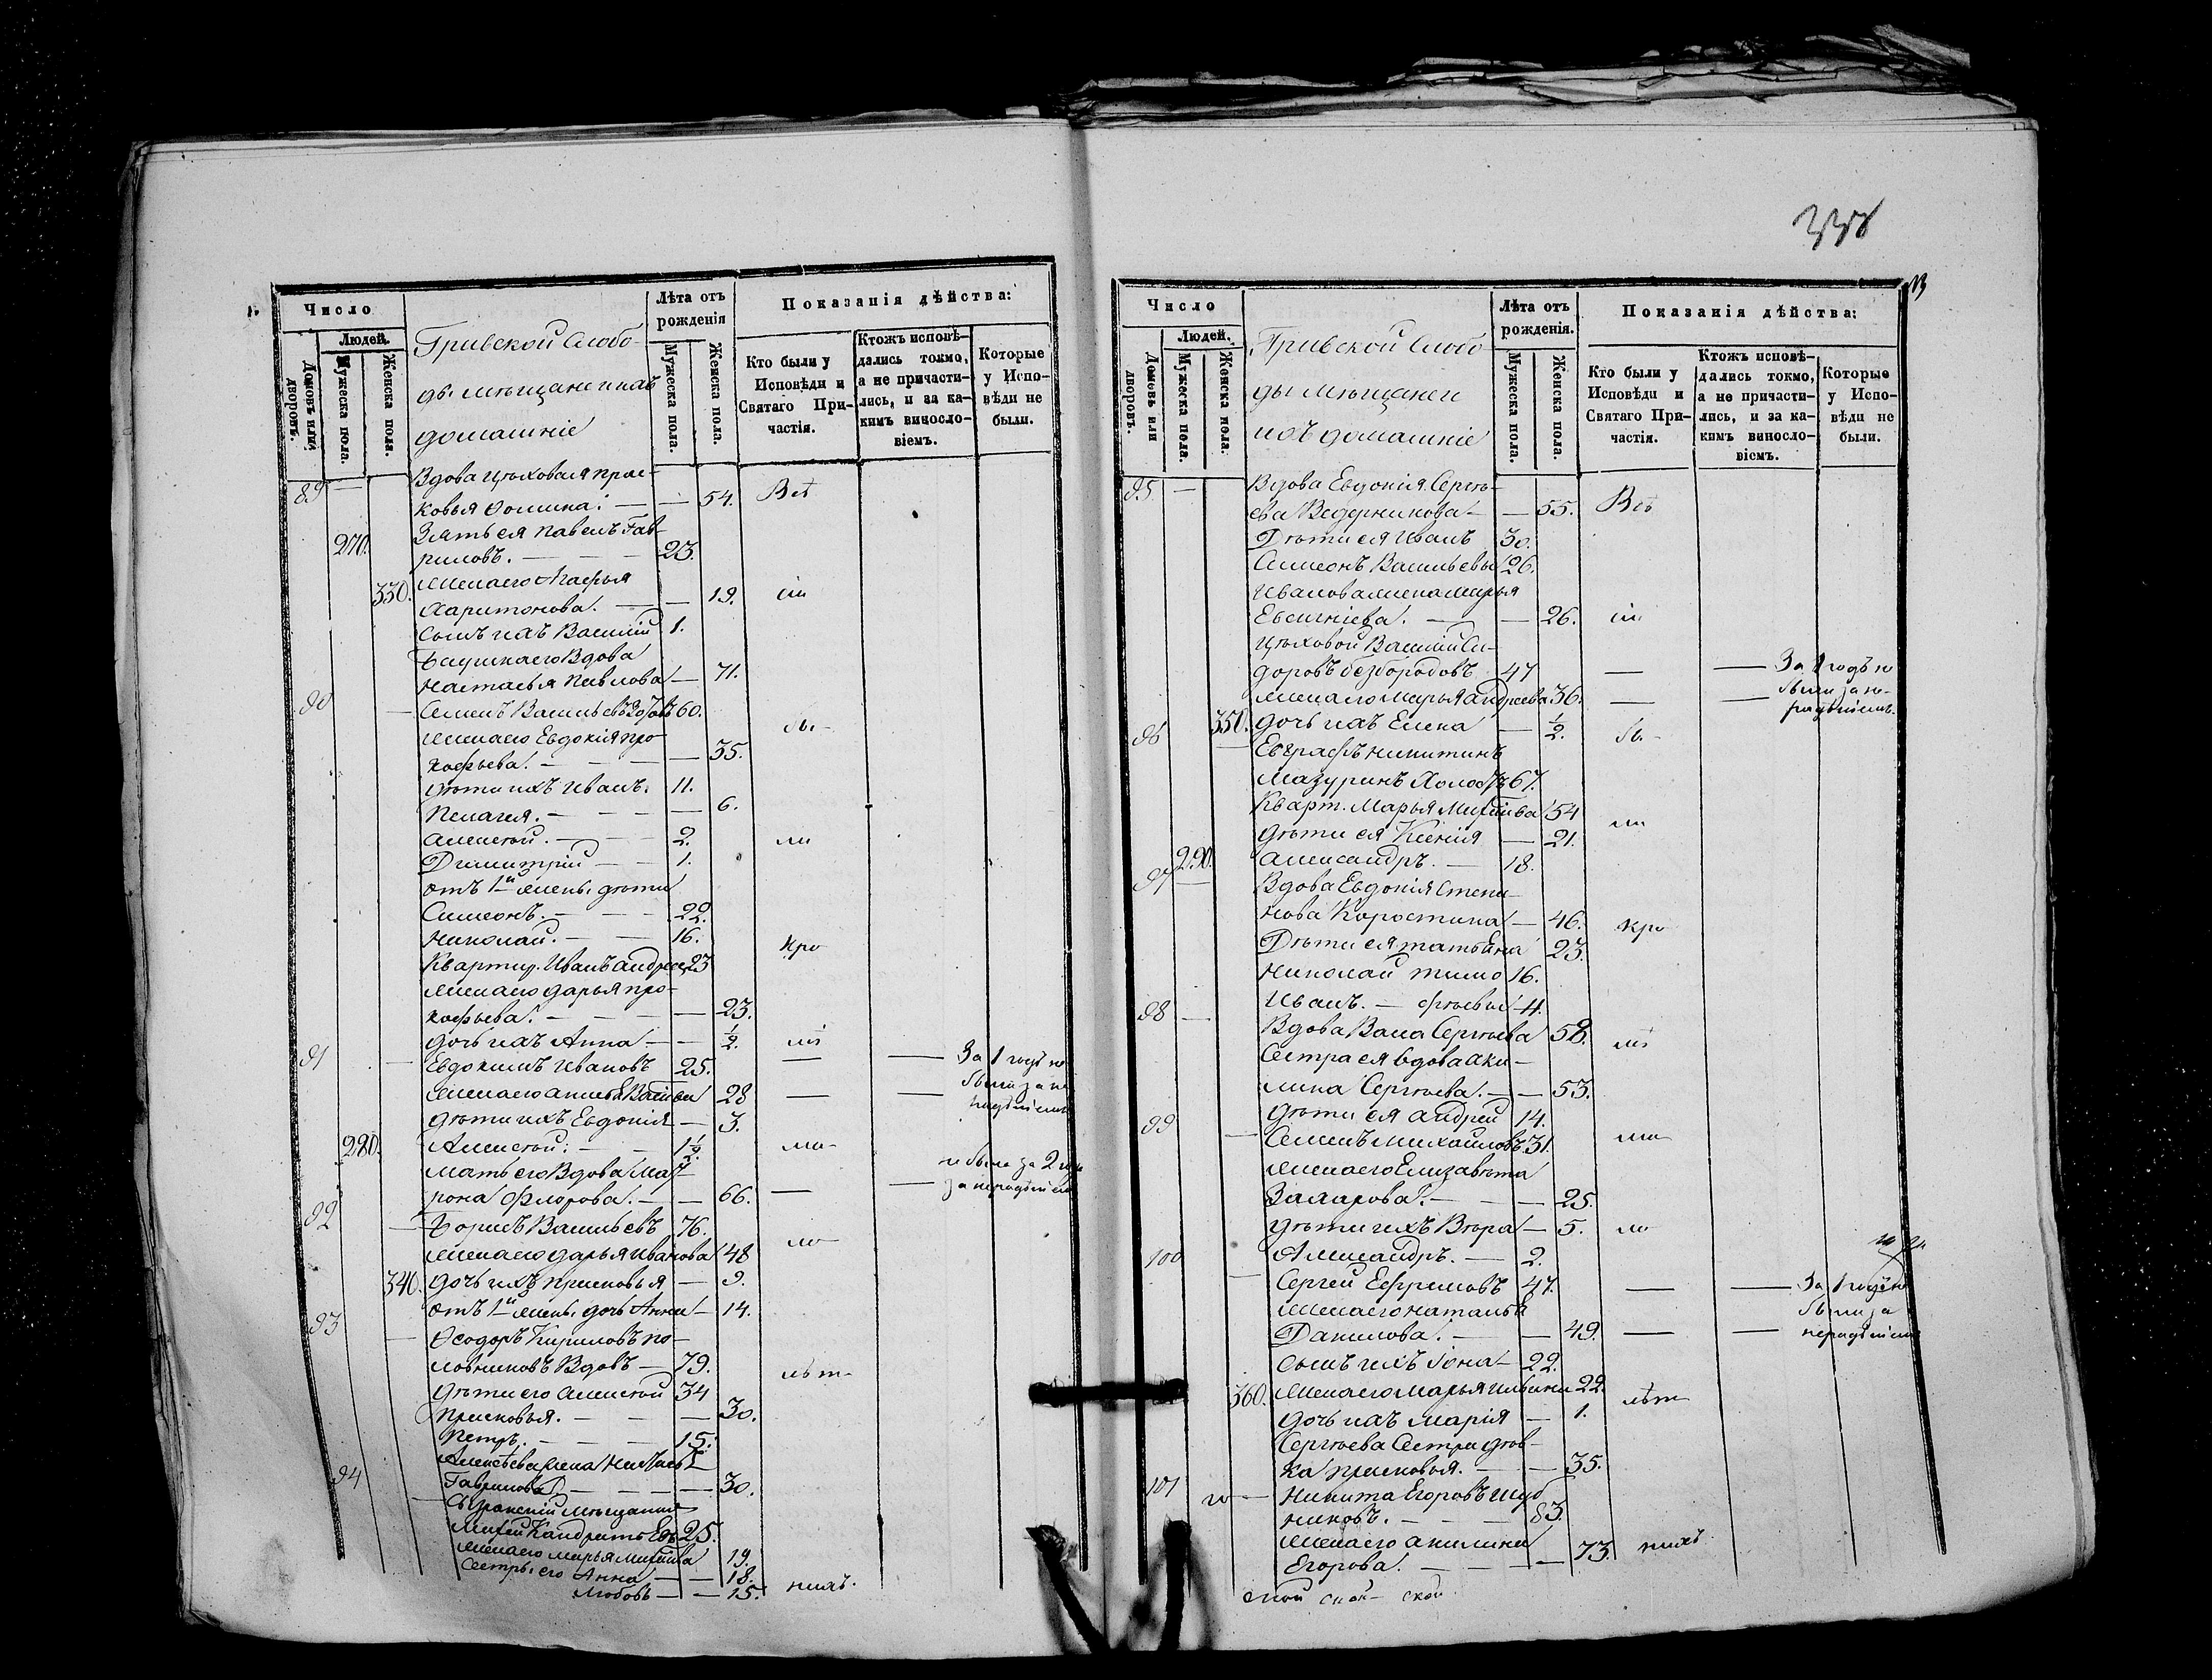 338
13
Число
Людей.
Домовъ или дворовъ.
Мужеска пола.
Женска пола.
Гривской Слобо-
ды мѣщане и ихъ
домашніе
Лѣта отъ рожденія
Мужеска пола.
Женска пола.
Показанія дѣйства:
Кто были у Исповѣди и Святаго При-частія.
Ктожъ исповѣ-дались токмо, а не причасти-лись, и за ка-кимъ винословіемъ.
Которые у Испо-вѣди не были.
89 — Вдова цѣховая Прас-
ковья Фомина. — — 54. Всѣ
270. Зять ея Павелъ Гав-
риловъ. — 23.
330. Жена его Агафья
Харитонова. — — 19.
Сынъ ихъ Василій 1.
Бабушка его Вдова
Настасья Павлова — 71.
90 — Семенъ Васильевъ 60.
Жена его Евдокія Про-
кофьева. — — 35.
Дѣти ихъ Иванъ. 11.
Пелагея. — — 6.
Алексѣй. — 2. ли
Димитрій — 1.
отъ 1й жены дѣти
Симеонъ. — 22.
Николай. — 16. кро
Квартир. Иванъ Андреев 23
Жена его Дарья Про-
кофьева. — — 23.
Дочь ихъ Анна — — ½.
91 — Евдокимъ Ивановъ 25. — — За 1 годъ не
были за не-
радѣніемъ
Жена его 28 — —
Дѣти ихъ Евдокія — 3.
280. Алексѣй. — 1½.
Мать его Вдова Мат-
рона Флорова. — — 66. — — не была за 2 года
за нерадѣніемъ
92 — Борисъ Васильевъ 76.
Жена его Дарья Иванова 48
340. Дочь ихъ Прасковья — 9.
отъ 1й жены дочь Анна — 14.
93 — Ѳеодоръ Кириловъ По-
ловниковъ Вдовъ — 79.
Дѣти его Алексѣй 34
Прасковья. — — 30.
Петръ. — 15.
Алексѣева жена
Гаврилова. — — 30.
94 — Сызранскій мѣщанинъ
25.
Жена его Марья 19.
Сестры его Анна — — 18.
Любовь — — 15. никъ.
Число
Людей.
Домовъ или дворовъ.
Мужеска пола.
Женска пола.
Гривской Слобо-
ды мѣщане и
ихъ домашніе
Лѣта отъ рожденія.
Мужеска пола.
Женска пола.
Показанія дѣйства:
Кто были у Исповѣди и Святаго При-частія.
Ктожъ исповѣ-дались токмо, а не причасти-лись, и за ка-кимъ винословіемъ.
Которые у Испо-вѣди не были.
95 — Вдова Евдокія Сергѣ-
ева Ведерникова — — 55. Всѣ
Дѣти ея Иванъ 30.
Симеонъ Васильевы 26.
Иванова жена Марья
Евсигніева. — — 26.
Цѣховой Василій Си-
доровъ Безбородовъ. 47 — — За 1 годъ не
были за не-
радѣніемъ.
Жена его Марья Андреева 36. — —
350. Дочь ихъ Елена — ½.
96 — Евграфъ Никитинъ
Мазуринъ Холостъ 67.
Кварт. Марья 54
Дѣти ея Ксенія — 21.
290. Александръ. — 18.
97 — Вдова Евдокія Степа-
нова Коростина — 46. кро
Дѣти ея Татьяна 23.
Николай Тимо 16.
Иванъ. — фѣевы 4.
98 — Вдова Васса Сергѣева 58.
Сестра ея вдова Аки-
лина Сергѣева. — — 53.
Дѣти ея Андрей 14.
99 — Семенъ Михайловъ 31.
Жена его Елизавета
Захарова. — — 25.
Дѣти ихъ Вѣра — 5.
Александръ. — 2.
100 — Сергей Ефремовъ 47. — — За 1 годъ не
были за
нерадѣніемъ
Жена его Наталья
Данилова. — — 49. — —
Сынъ ихъ Іона — 22.
360. Жена его Марья Ильина 22.
Дочь ихъ Марія — 1.
Сергѣева Сестра Дѣв-
ка Прасковья. — — 35.
101 — Никита Егоровъ Шуб
никовъ. — 83.
Жена его Акилина
Егорова. — — 73. никъ.
ской ской — ской